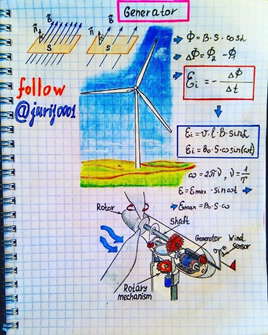 Generator
n B S
n B S
Φ = B·S·cosα
ΔΦ = Φ₂ - Φ₁
Ɛi = - ΔΦ/Δt
follow
@jarij0001
Ɛi = v·l·B·sinα
Ɛi = B₀·S·ω sin(ωt)
ω = 2πν, ν = 1/T
Ɛ = Ɛmax · sin ωt
Ɛmax = B₀·S·ω
Rotor
Shaft
Generator
Wind
sensor
Rotary
mechanism